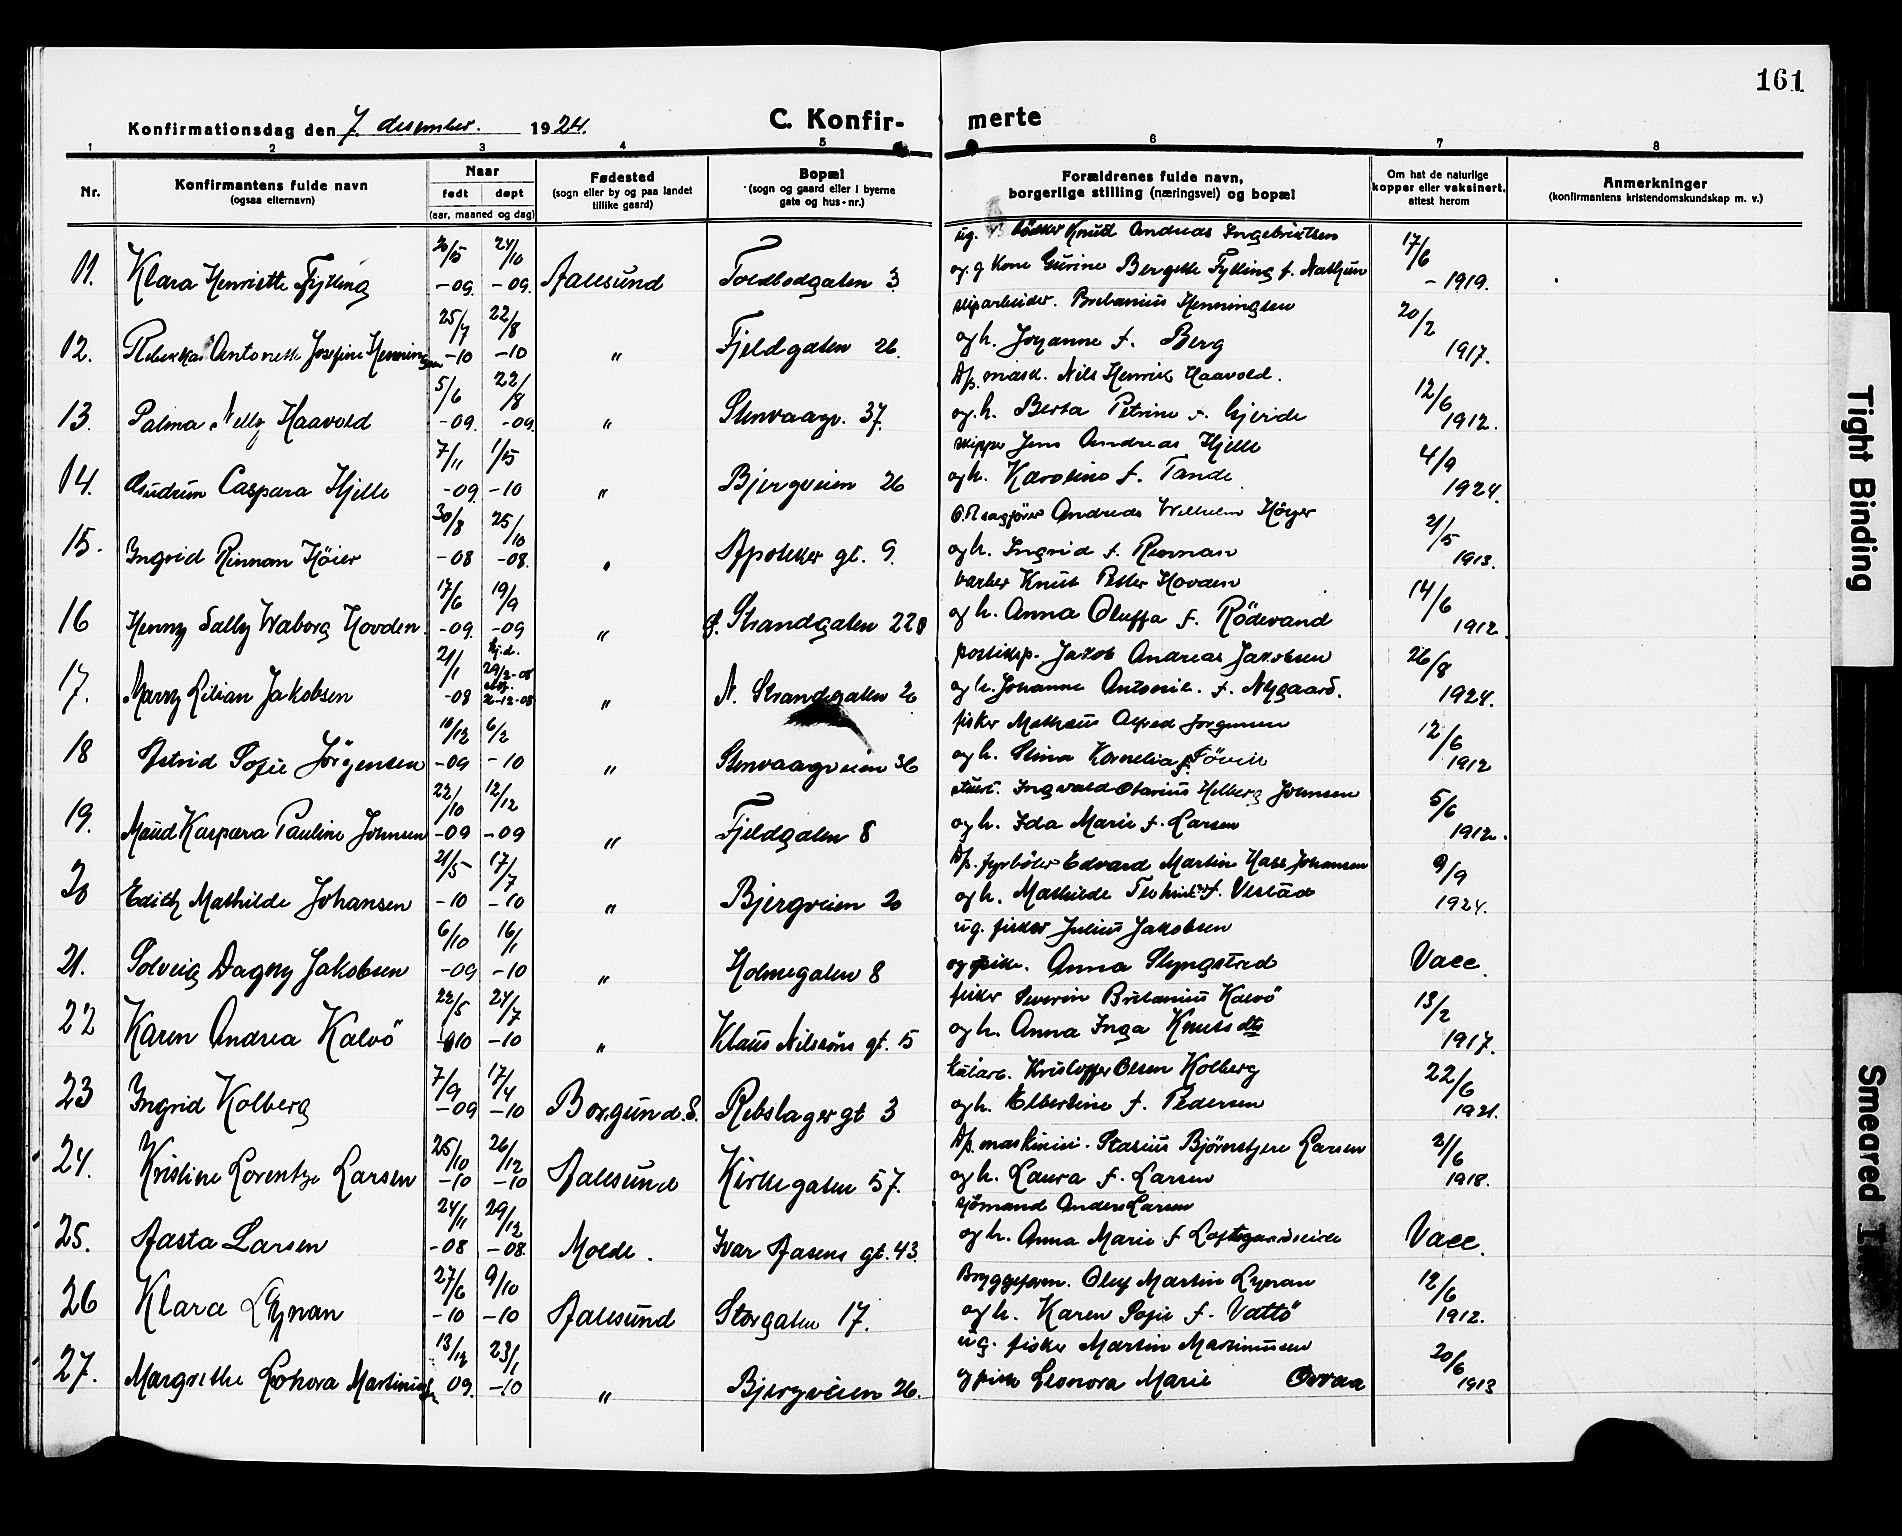 161
Konfirmationsdag den 7. desember. 1924.
C. Konfirmerte
1 2 3 4 5 6 7 8
Nr.
Konfirmantens fulde navn
(ogsaa efternavn)
Naar
født døpt
(aar, maaned og dag)
Fødested
(sogn eller by og paa landet
tillike gaard)
Bopæl
(sogn og gaard eller i byerne
gate og hus-nr.)
Forældrenes fulde navn,
borgerlige stilling (næringsvei) og bopæl
Om hat de naturlige
kopper eller vaksinert,
attest herom
Anmerkninger
(konfirmantens kristendomskundskap m. v.)
ug. Knud Andreas Ingebriktsen
11. Klara Henriette Fylling 30/5 -09. 24/10 -09. Aalesund Toldbodgaten 3 og g. kone Gurine Bergette Fylling f. 17/6 - 1919.
sliparbeider. Britanius Henningsen
12. Rebekka Antonette Josefine Henningsen 25/7 -10 22/8 -10 " Fjeldgaten 26. og h. Johanne f. Berg 20/2 1917.
Dp. mask. Nils Henrik Haavold.
13. Palma Nelly Haavold 5/6 -09. 22/8 -09. " Stenvaagv. 37. og h. Berta Petrine f. Gjerde 12/6 1912.
skipper Jens Andreas Hjelle
14. Gudrun Caspara Hjelle 7/11 -09. 1/5 -10 " Bjergveien 26 og h. Karoline f. Tande 4/9 1924.
O.R.sagfører Andreas Wilhelm Höyer
15. Ingrid Rinnan Höier 30/8 -08 25/10 -08. " Apoteker gt. 9. og h. Ingrid f. Rinnan 21/5 1913.
barber Knut Petter Hovden
16 Henny Sally Waborg Hovden. 17/6 -09. 19/9 -09 " Strandgaten 22 og h. Anna Oluffa f. Rödevand 14/6 1912.
posteksp. Jakob Andreas Jakobsen
17. Marry Lilian Jakobsen 21/1 -08 hj.d. 29/2-08 " N. Strandgaten 20 og h. Johanne Antonie. f. Nygaard. 26/8 1924.
fisker Mathæus Alfred Jørgensen
18 Astrid Sofie Jørgensen 10/12 -09 6/2 -10 " Stenvaagveien 36 og h. Stina Kornelia f. 12/6 1912
Ingvald Olarius Helberg Johnsen
19. Maud Kaspara Pauline Johnsen 22/10 -09 12/12 -09 " Fjeldgaten 8 og h. Ida Marie f. Larsen 5/6 1912.
Dp. fyrböter Edvard Martin Hass Johansen
20 Edith Mathilde Johansen 21/5 -10 17/7 -10 " Bjergveien 20 og h. Mathilde f. Vestad 9/9 1924.
ug. fisker Julius Jakobsen
21. Solveig Dagny Jakobsen 6/10 -09 16/1 -10 " Holmegaten 8 og pike. Anna Slyngstad Vacc.
fisker Severin Britanius Kalvö
22 Karen Andrea Kalvö 22/5 -10 24/7 -10 " Klaus Nilssöns gt. 5 og h. Anna Inga Knutsdtr 13/2 1917.
Kristoffer Olsen Kolberg
23 Ingrid Kolberg 7/9 -09 17/4 -10 Borgund. S. Rebslager gt 3 og h. Elbertine f. Pedersen 22/6 1921.
Dp. maskinist. Stasius Bjørnstjerne Larsen
24. Kristine Lorentze Larsen 25/10 -10 26/12 -10 Aalesund Kirkegaten 57. og h. Laura f. Larsen 2/6 1918.
sjömand Anders Larsen
25. Aasta Larsen 24/11 -08 29/12 -08. Molde. Ivar Aasens gt. 43. og h. Anna Marie f. Vacc.
Bryggeform. Oluf Martin Lynan
26 Klara Lynan 27/6 -10 9/10 -10 Aalesund Storgaten 17. og h. Karen Sofie f. Vattö 12/6 1912.
ug. fisker Martin Martinussen
27. Margrethe Lohora Martinussen 13/12 09. 23/1 -10 " Bjergveien 26. og pike Leonora Marie Orvaa 20/6 1913
Tight Binding
Smeared Ink